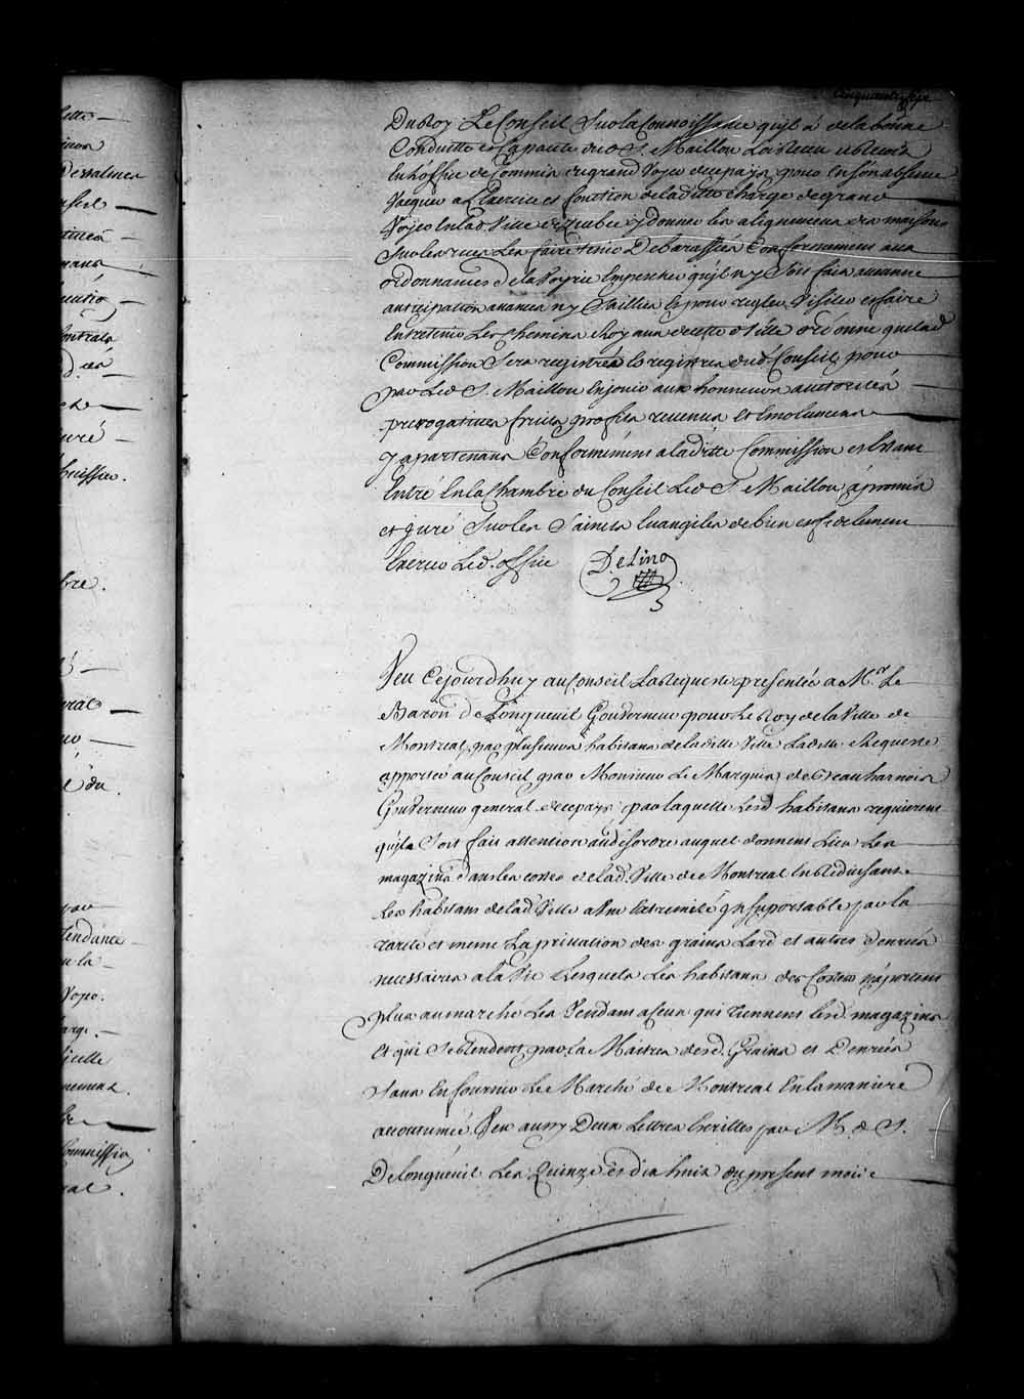 lette
Dessalines
Contrats
huissier.
bre.
par
tendance
Voyer.
icelle
Commission
cinquante
Du Roy Le Conseil Sur la Connoissance quil a de la bonne
Conduitte et Capacité dud S. Maillou La Receu
En l'office de Commis du grand Voyer de ce pays, pour En son absence
Vacquer a L'Exercice et fonction de la ditte charge de grand
Voyer En lad. Ville de Quebec y donner les alignemens des maisons
Sur les rues Les faire tenir Debarassées Conformement aux
ordonnances de la Voyrie Empescher quil n'y Soit fait aucune
anticipation avances ny Saillies Et pour regler Visiter et faire
Entretenir Les Chemins Royaux de cette Ville ordonne que lad
Commission Sera registrée Es registres dud. Conseil, pour
par Led S. Maillou En jouir aux honneurs auctorités
prerogatives fruits profits revenus Et Emolumens
y apartenans Conformément a la ditte Commission et Estant
Entré En la Chambre du Conseil Led S. Maillou a promis
et Juré Sur les Saints Evangiles de bien et fidelement
Exercer Led. office Delino
Veu Cejourdhuy au Conseil La Requeste presentée a M.r Le
Baron de Longueuil Gouverneur pour Le Roy de la Ville de
Montreal, par plusieurs habitans de la ditte Ville Ladite Requeste
apportée au Conseil par Monsieur Le Marquis de Beauharnois
Gouverneur general de ce pays par laquelle Lesd habitans requierent
quil Soit fait attention au desordre auquel donnent Lieu Les
magazins dans les costes de lad. Ville de Montreal En Reduisant
Les habitans de lad Ville a Une Extremité Insuportable par la
rareté et meme La privation des grains Lard et autres denrées
necessaires a la Vie Lesquels Les habitans des Costes n'aportent
plus au marché Les Vendans a Ceux qui tiennent lesd. magazins
Et qui Se Rendent par la Maitres desd. Grains et Denrées
Sans En fournir Le Marché de Montreal En la maniere
accoutumée. Veu aussy Deux Lettres Ecrittes par M. d. S.
De Longueuil Les Quinze et dix huit du present mois